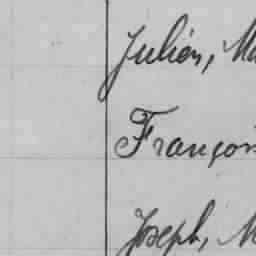 Julien, Ma
François
Joseph, M